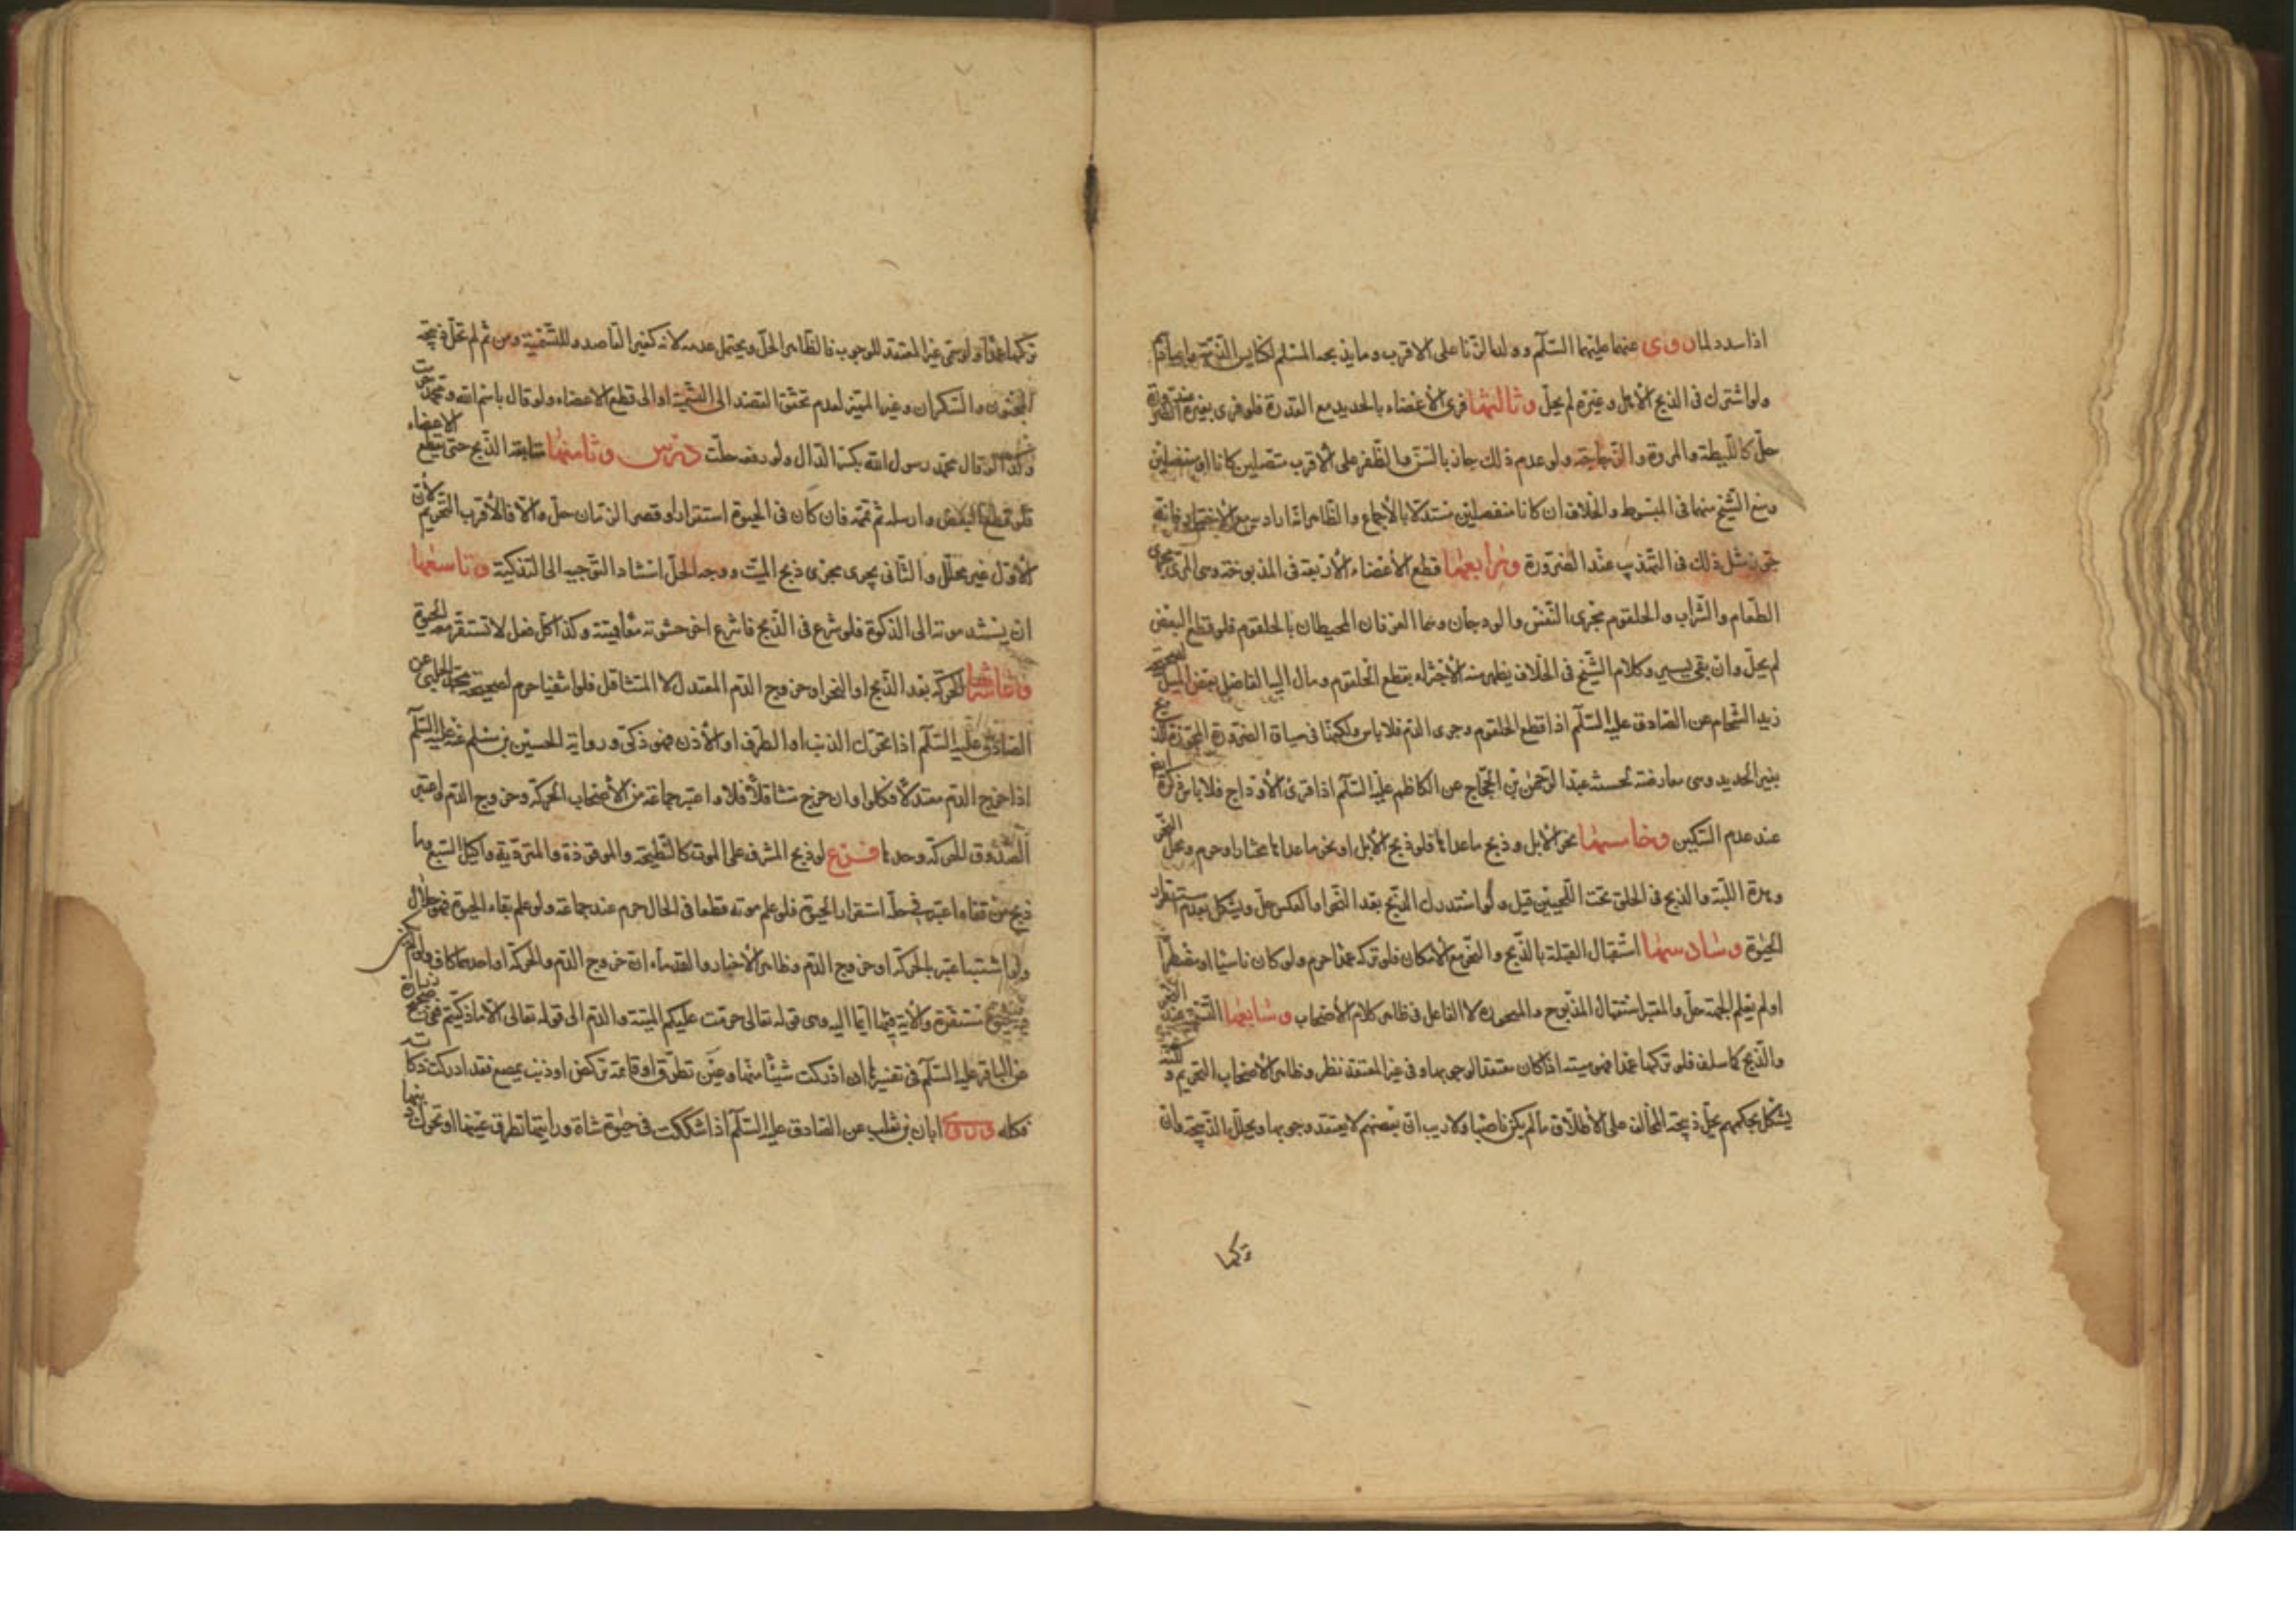 اذا سدد لمان وروى عنهما عليهما السّلم وولد الزّنا على الاقرب وما يذبحه المسلم لكنايس الذمّة
ولو اشترك فى الذبح الأهل وغيره لم يحلّ وثالثها فرى الأعضاء بالحديد مع القدرة فلو فرى بغيره عند الضرورة
حلّ كاللّيطة والمروة والزّجاجة ولو عدم ذلك جاز بالسّنّ والظّفر على الاقرب متصلين كانا او منفصلين
ومنع الشّيخ منهما فى المبسوط والخلاف ان كانا منفصلين مستدلا بالأجماع والظّاهر انّه اراد مع الأختيار فانّه
جوّز مثل ذلك فى التّهذيب عند الضّرورة ورابعها قطع الأعضاء الأربعة فى المذبوحة وهى المرى مجرى
الطّعام والشّراب والحلقوم مجرى النّفس والودجان وهما العرقان المحيطان بالحلقوم فلو قطع البعض
لم يحلّ وان بقى يسير وكلام الشّيخ فى الخلاف يظهر منه الأجتزاء بقطع الحلقوم ومال اليه الفاضل بعض الميل لصحيحة
زيد الشّحام عن الصّادق عليه السّلم اذا قطع الحلقوم وجرى الدّم فلا باس ولكنّها فى سياق الضّرورة المجوّزة للذبح
بغير الحديد وهى معارضة لحسنة عبد الرّحمن بن الحجّاج عن الكاظم عليه السّلم اذا فرى الأوداج فلا باس ذكره ايضا
عند عدم السّكين وخامسها نحر الأبل وذبح ما عداها فلو ذبح الأبل او نحر ما عداها مختارا حرم ومحلّ النّحر
وهدة اللّبّة والذبح فى الحلق تحت اللّحيين قيل ولو استدرك الذّبح بعد النّحر او العكس حلّ ويشكل بعدم استقرار
الحيوة وسادسها استقبال القبلة بالذّبح والنّحر مع الأمكان فلو تركه عمدا حرم ولو كان ناسيا او مضطرّا
او لم يعلم الجهة حلّ والمعتبر استقبال المذبوح والمنحور لا الفاعل فى ظاهر كلام الأصحاب وسابعها التّسمية عند النّحر
والذّبح كما سلف فلو تركها عمدا فهو ميتة اذا كان معتقد الوجوبها وفى غير المعتقد نظر وظاهر الأصحاب التحريم ولكنه
يشكل بحكمهم بحلّ ذبيحة المخالف على الأطلاق ما لم يكن ناصبا ولا ريب انّ بعضهم لا يعتقد وجوبها ويحلّل الذّبيحة وان
تركها
تركها عمدا ولو سمّى غير المعتقد للوجوب فالظّاهر الحلّ ويحتمل عدمه لانّه كغير القاصد وللتّسمية ومن ثم لم تحلّ ذبيحة
المجنون والسّكران وغير المميّز لعدم تحقّق القصد الى التّسمية او الى قطع الاعضاء ولو قال باسم الله ومحمّد حرمت
وكذا لو قال محمّد رسول الله بكسر الدّال ولو رفعه حلّت درس وثامنها متابعة الذّبح حتّى يقطع الاعضاء
فلو قطع البعض وارسله ثم تممه فان كان فى الحيوة استقرار او قصر الزّمان حلّ والّا فالأقرب التحريم لانّ
الأوّل غير محلّل والثّانى يجرى مجرى ذبح الميّت ووجه الحلّ استناد التّوجيه الى التذكية وتاسعها
ان يستند موته الى الذكوة فلو شرع فى الذّبح فانتزع اخر حشوته معا فميتة وكذا كلّ فعل لا تستقرّ معه الحيوة
وعاشرها الحركة بعد الذّبح او النّحر او خروج الدّم المعتدل لا المتثاقل فلو انتفيا حرم لصحيحة محمّد الحلبى عن
الصّادق عليه السّلم اذا تحرّك الذنب او الطّرف او الأذن فهو ذكىّ ورواية الحسين بن مسلم عنه عليه السّلم
اذا خرج الدّم معتدلا فكلوا وان خرج متثاقلا فلا واعتبر جماعة من الأصحاب الحركة وخروج الدّم واعتبر
الصّدوق الحركة وحدها فرع لو ذبح المشرف على الموت كالنّطيحة والموقوذة والمتردّية واكيل السّبع وما
ذبح من قفاه اعتبر فى حلّه استقرار الحيوة فلو علم موته قطعا فى الحال حرم عند جماعة ولو علم بقاء الحيوة فهو حلال
ولو اشتبه اعتبر بالحركة او خروج الدّم وظاهر الأخبار والقدماء انّ خروج الدّم والحركة او احدهما كاف ولو لم يكن
فيه حيوة مستقرّة والأية فيها ايماء اليه وهى قوله تعالى حرّمت عليكم الميتة والدّم الى قوله تعالى الّا ما ذكّيتم ففى صحيح زرارة
عن الباقر عليه السّلم فى تفسيرها ان ادركت شيئا منها وعين تطرف او قائمة تركض او ذنب يمصع فقد ادركت ذكاته
فكله وروى ابان بن تغلب عن الصّادق عليه السّلم اذا شككت فى حيوة شاة ورايتها تطرف عينها او تحرّك ذنبها